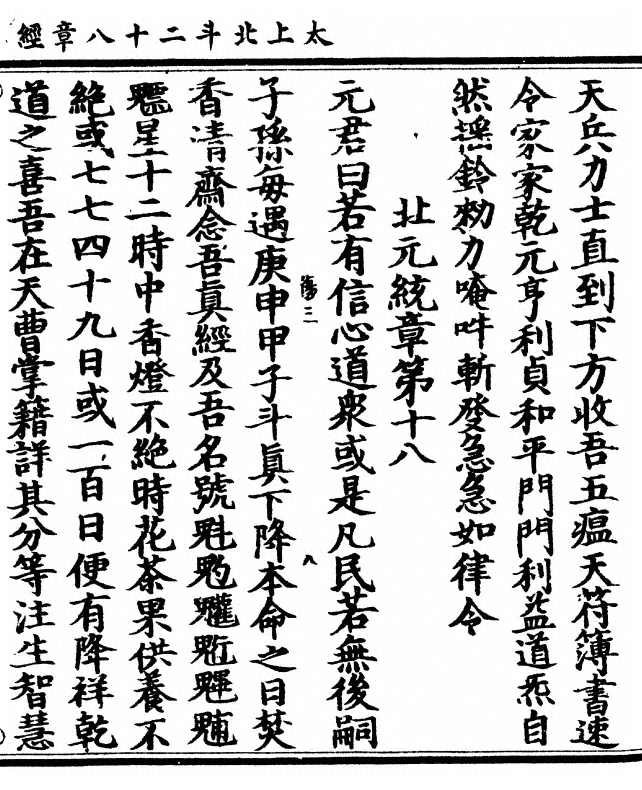 太上北斗二十八章經
天兵力士直到下方收吾五瘟天符簿書速
令家家乾元亨利貞和平門門利益道炁自
然搖鈴勑力唵吽斬發急急如律令
北元統章第十八
元君曰若有信心道衆或是凡民若無後嗣
子孫每遇庚申甲子斗眞下降本命之日焚
香清齋念吾眞經及吾名號魁䰢䰫
星十二時中香燈不絕時花茶果供養不
絕或七七四十九日或一百日便有降祥乾
道之喜吾在天曹掌籍詳其分等注生智慧
傷三
八